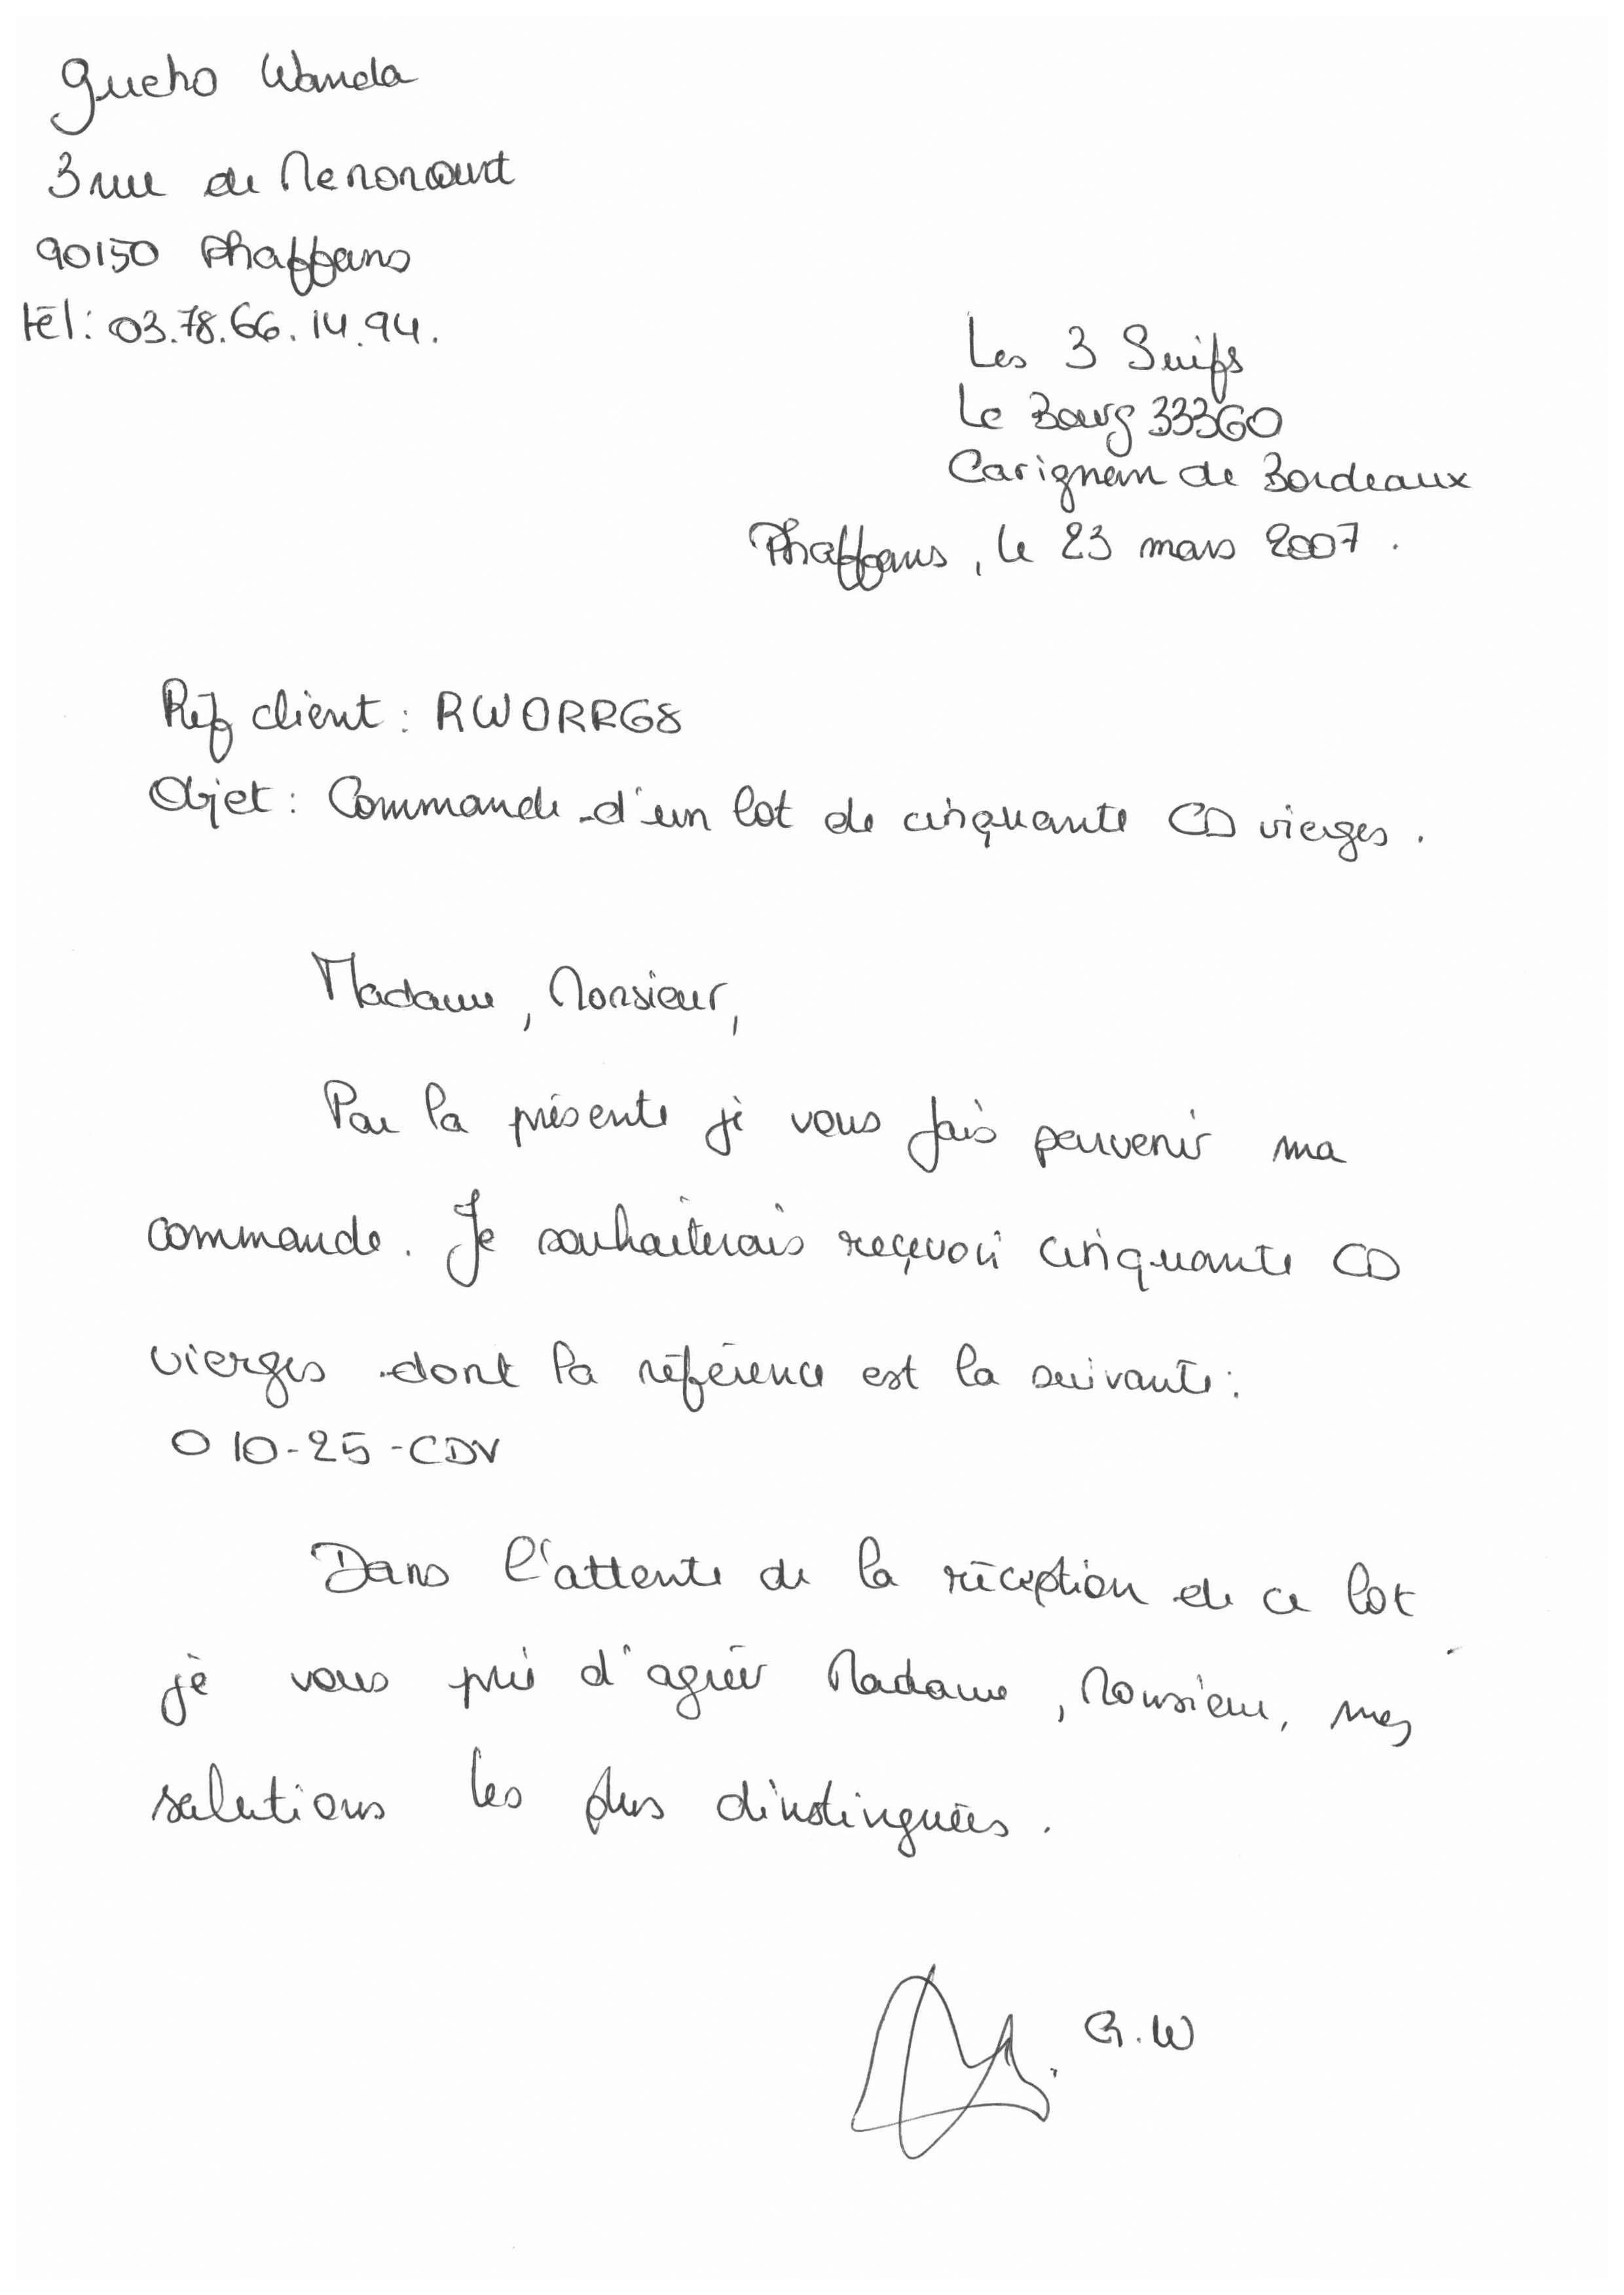 Gucho Wanda
3 rue de Menoncourt
90150 Phaffans
tél: 03.78.66.14.94.
Les 3 Suifs
Le Bourg 33360
Carignan de Bordeaux
Phaffans, le 23 mars 2007.
Réf client : RWORRG8
Objet : Commande d'un lot de cinquante CD vierges.
Madame, Monsieur,
Par la présente je vous fais parvenir ma
commande. Je souhaiterais reçevoir cinquante CD
vierges dont la référence est la suivante :
O 10-25-CDV
Dans l'attente de la réception de ce lot
je vous prie d'agréer Madame, Monsieur, mes
salutions les plus dinstinguées.
G.W